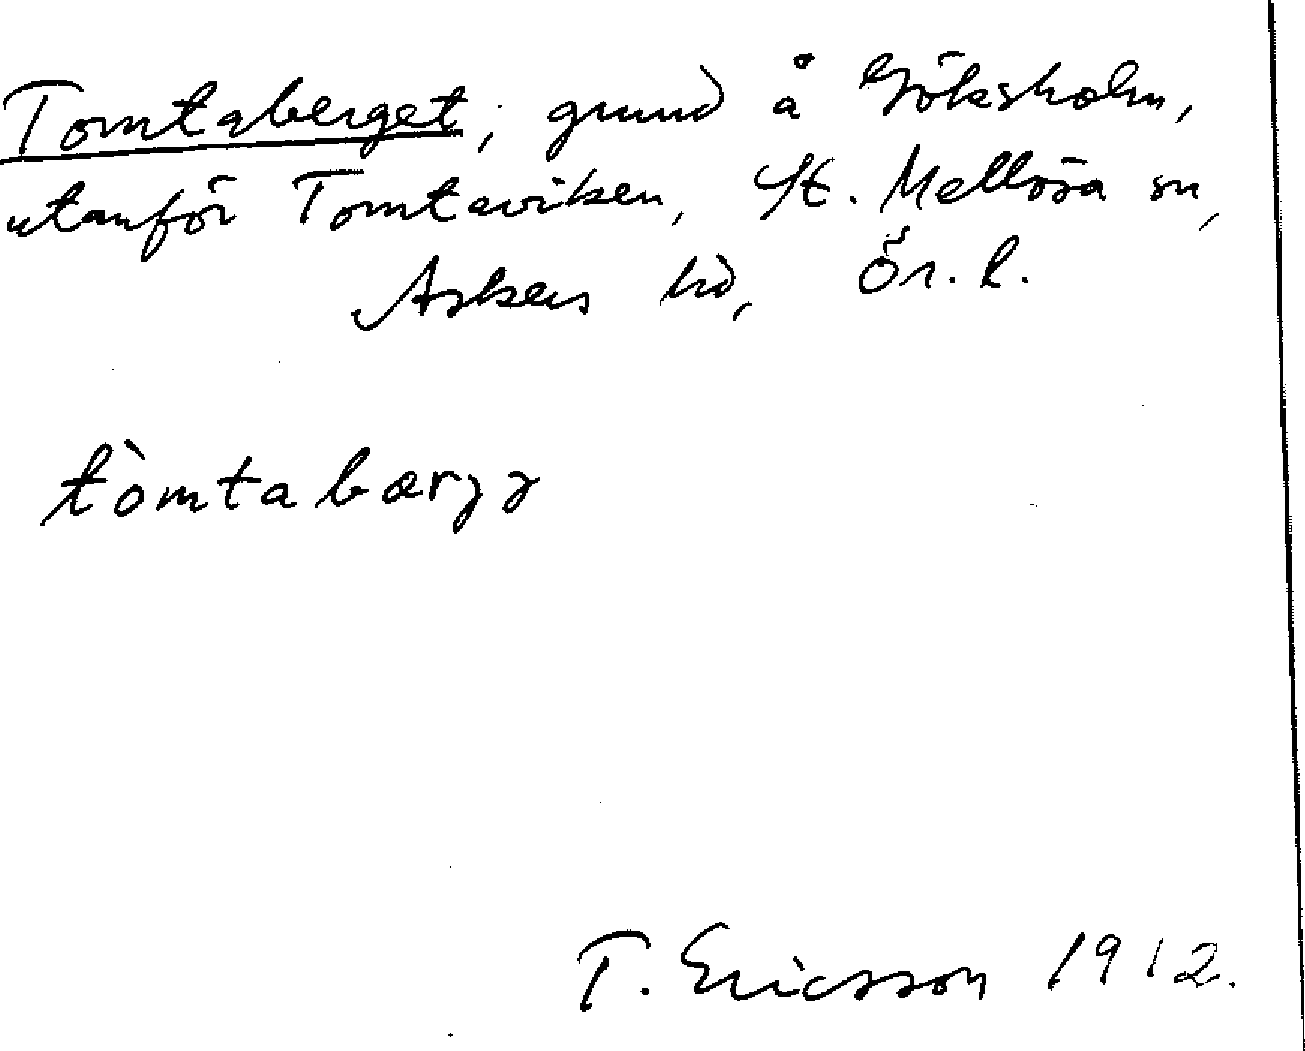 Tomtaberget, grund å Göksholm,
utanför Tomtaviken, St. Mellösa sn,
Askers hd, Ör. l.
tòmtabærjə
T. Ericsson 1912.